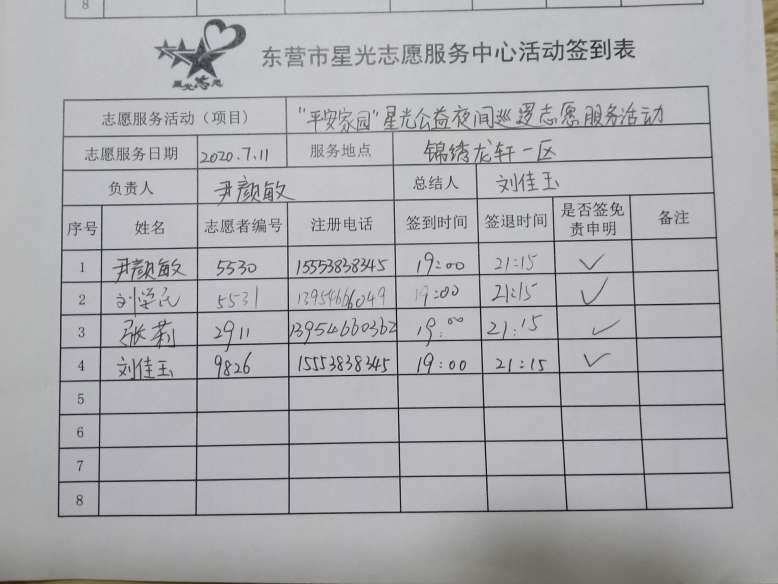 8
星光志愿
东营市星光志愿服务中心活动签到表
志愿服务活动（项目） "平安家园"星光公益夜间巡逻志愿服务活动
志愿服务日期 2020.7.11 服务地点 锦绣龙轩一区
负责人 尹颜敏 总结人 刘佳玉
序号 姓名 志愿者编号 注册电话 签到时间 签退时间 是否签免责申明 备注
1 尹颜敏 5530 15553838345 19:00 21:15 ✓
2 刘学民 5531 13954666049 19:00 21:15 ✓
3 张莉 2911 13954660362 19:00 21:15 ✓
4 刘佳玉 9826 15553838345 19:00 21:15 ✓
5
6
7
8